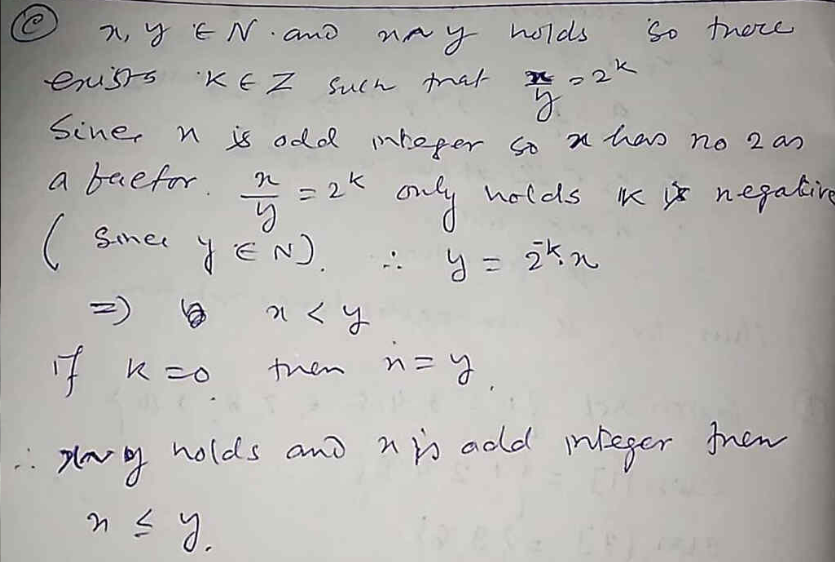 ⓒ x, y ∈ N. and x ~ y holds so there
exists K ∈ Z such that x/y = 2^k
Since x is odd integer so x has no 2 as
a factor. x/y = 2^k only holds K is negative
( Since y ∈ N ). ∴ y = 2^-k. x
=) x < y
if K = 0 then x = y.
∴ x ~ y holds and x is odd integer then
x ≤ y.